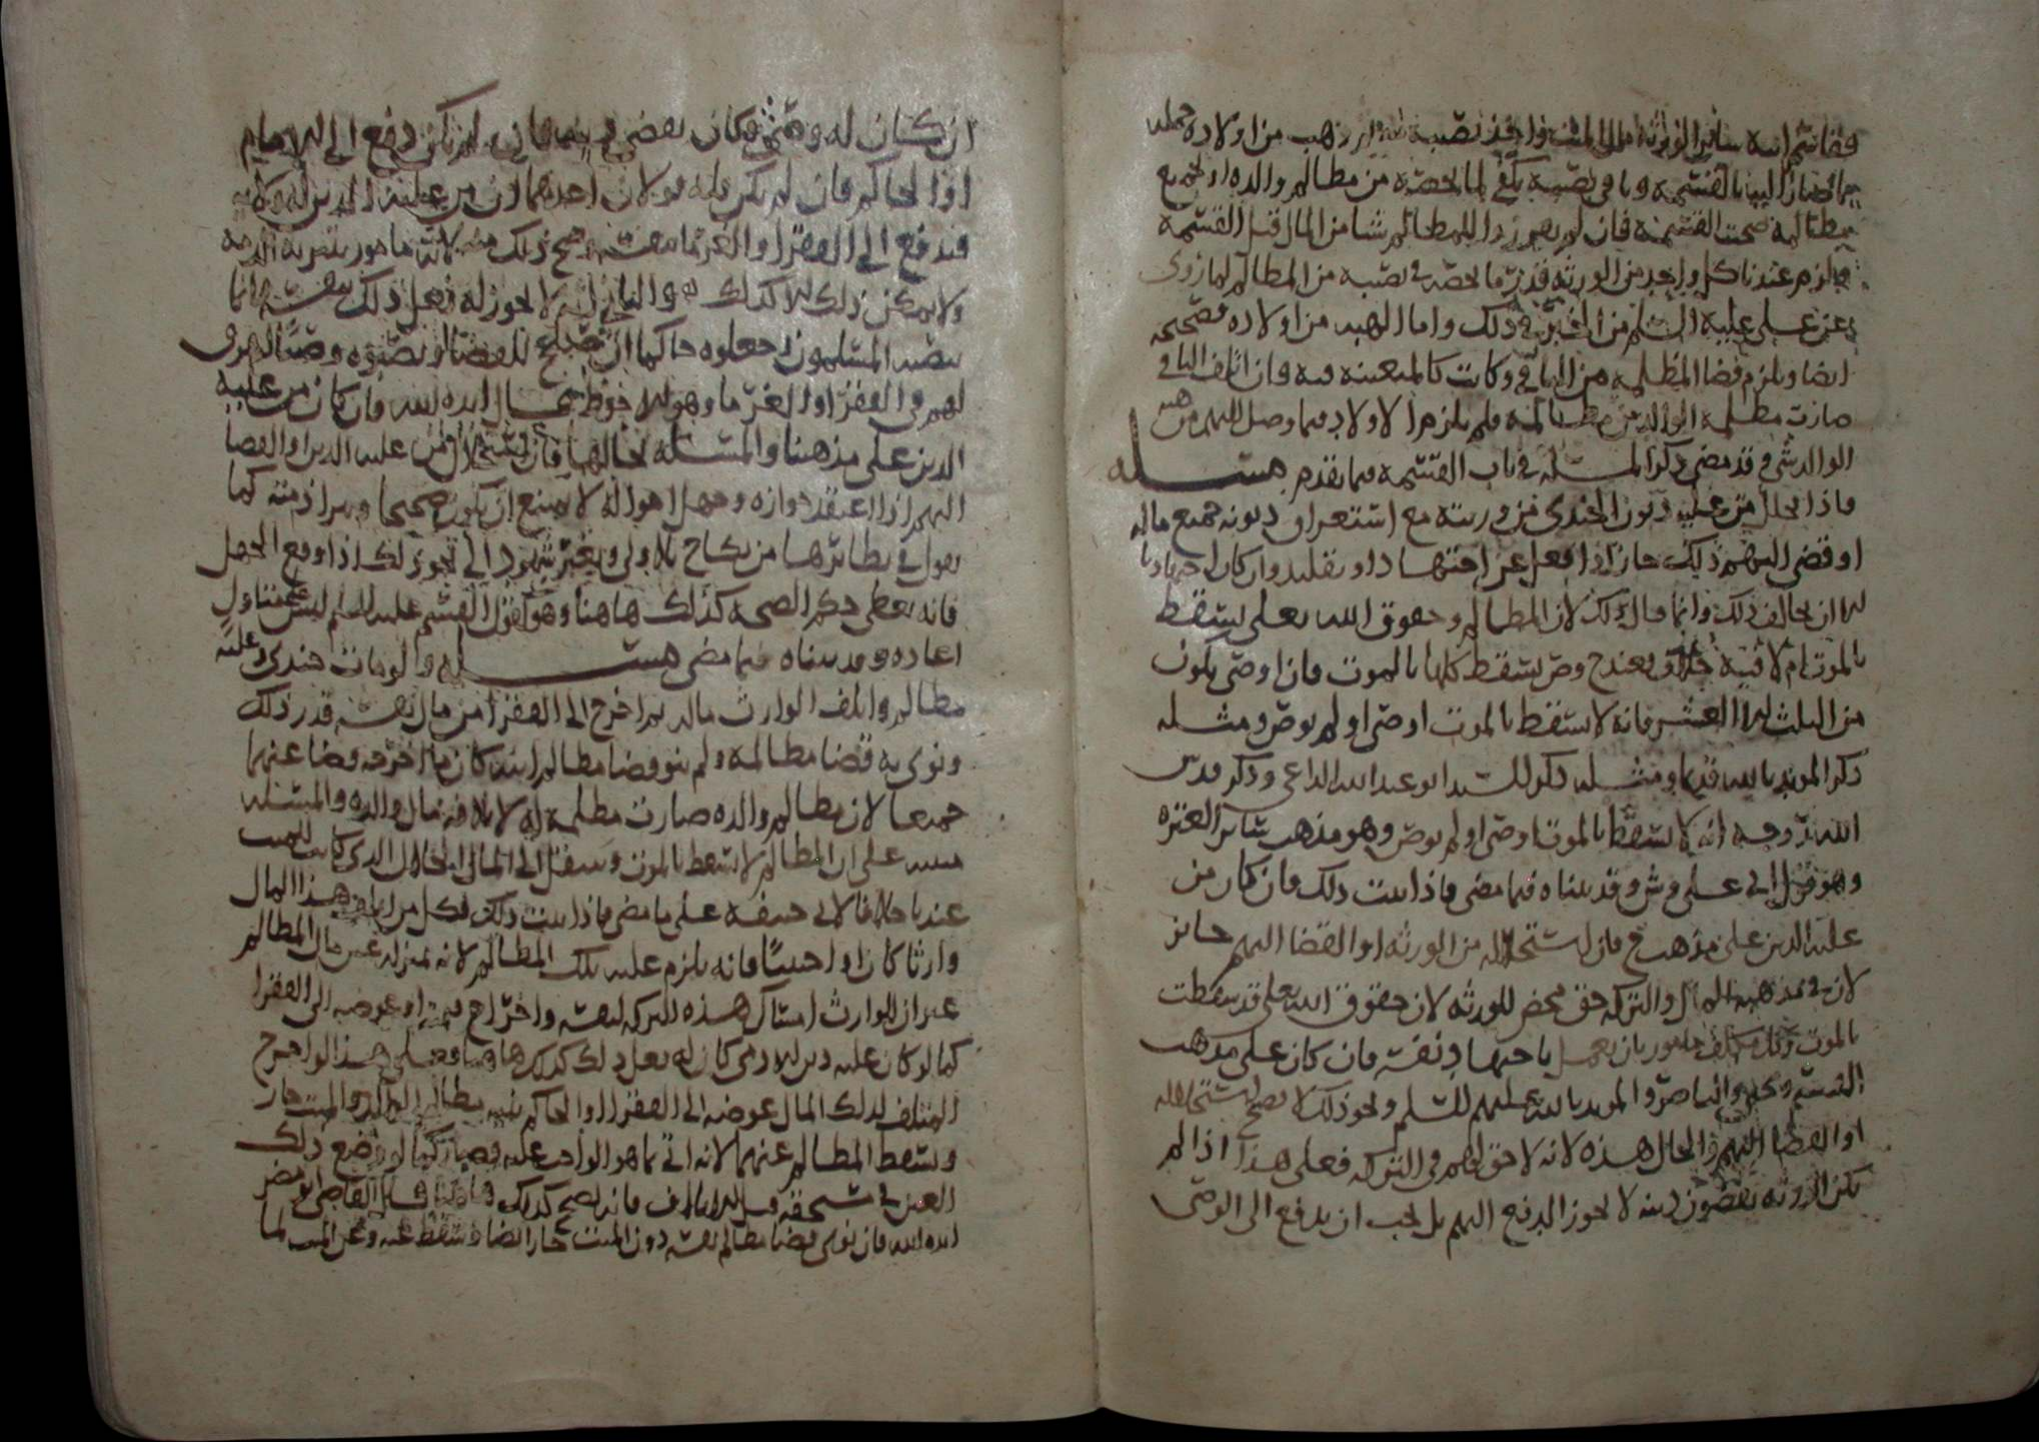 فقاسم ابنه سائر الورثة مال الميت واخذ نصيبه ذهب من اولاده جمله
مما صار اليه بالقسمة وباقي نصيبه يكفي لما يخصه من مطالم والده او لجميع
مطالمه صحت القسمة فان لم يفرزوا للمطالم شيا من المال قبل القسمة
فيلزم عندنا كل واحد من الورثة قدر ما يخصه في نصيبه من المطالم لما روي
عن علي عليه السلم من الخبر في ذلك واما الهبه من اولاده فصحيحه
ايضا ويلزم قضا المظلمه من الباقي وكانت كالمتعينه فيه فان اتلف الباقي
صارت مظلمه الوالد من مطالمه ولم يلزم الاولاد فيما وصل اليهم من هبه
الوالد شي وقد مضى ذكر المسله في باب القسمه فيما تقدم مسله
فاذا استحل من عليه ديون الجندي من ورثته مع استغراق ديونه جميع ماله
او قضى اليهم ذلك جاز اذا فعل عن اجتهاد او تقليد وان كان اجتهادنا
لنا ان يخالف ذلك وانما قال ذلك لان المطالم وحقوق الله تعالى يسقط
بالموت ام لا فيه خلاف فعند ح وص يسقط كلها بالموت فان اوصى يكون
من الثلث الا العشر فانه لا يسقط بالموت اوصى او لم يوص ومثله
ذكر المويد بالله قديما ومثله ذكر السيد ابو عبد الله الداعي وذكر قدس
الله روحه انه لا يسقط بالموت اوصى او لم يوص وهو مذهب سائر العتره
وهو قول ابي علي وش وقد بيناه فيما مضى فاذا ثبت ذلك فان كان من
عليه الدين على مذهب ح فان استحلاله من الورثه او القضا اليهم جائز
لان في مذهبه المال والتركه حق محض للورثه لان حقوق الله تعالى قد سقطت
بالموت وكل مكلف مامور بان يعمل باجتهاد نفسه فان كان على مذهب
القسم ويحيى والناصر والمويد بالله عليهم السلم ونحو ذلك لا يصح استحلاله
او القضا اليهم والحال هذه لانه لا حق لهم في التركه فعلى هذا اذا لم
يكن الورثه يقضون دينه لا يجوز الدفع اليهم بل يجب ان يدفع الى الوصي
ان كان له وصي وكان يقضي دينه فان لم يكن دفع الى الامام
او الى الحاكم فان لم يكن فله قولان احدهما ان من عليه الدين له ولايه
فيدفع الى الفقرا او الغرما بنفسه وصح ذلك منه لانه مامور بتبريه الذمه
ولا يمكن ذلك الا كذلك والثاني انه لا يجوز له فعل ذلك بنفسه وانما
ينصبه المسلمون او جعلوه حاكما ان صلح للقضا او نصبوه وصيا
لهم في الفقرا او الغرما وهو الاحوط قال ايده الله فان كان من عليه
الدين على مذهبنا والمسله بحالها فان استحلال من عليه الدين او القضا
اليهم اذا اعتقد جوازه وجهل احواله لا يمتنع ان يكون صحيحا ويبرا ذمته كما
نقول في نظائرها من نكاح بلا ولي وبغير شهود الى نحو ذلك اذا وقع الجهل
فانه يعطى حكم الصحه كذلك هاهنا وهو قول القسم عليه السلم ليس علينا ولي
اعاده وقد بيناه فيما مضى مسله ولو مات جندي وعليه
مطالم واتلف الوارث ماله ثم اخرج الى الفقرا من مال نفسه قدر ذلك
ونوى به قضا مظالمه ولم ينو قضا مظالم ابيه كان ما اخرجه قضا عنهما
جميعا لان مظالم والده صارت مظلمه له لاتلافه مال والده والمسله
مبنيه على ان المظالم لا يسقط بالموت وينتقل الى المال الحلال الذي كان للميت
عندنا خلافا لابي حنيفه على ما مضى فاذا ثبت ذلك فكل من اتلف هذا المال
وارثا كان او اجنبيا فانه يلزم عليه تلك المظالم لانه بمنزله عين مال المظالم
غير ان للوارث امساك هذه التركه لنفسه واخراج قيمته او عوضه الى الفقرا
كما لو كان عليه دين لادمي كان له فعل ذلك كذلك هاهنا فعلى هذا لو اخرج
المتلف لذلك المال عوضه الى الفقرا او الحاكم بنيه مظالم الميت جاز
ويسقط المظالم عنهما لانه اتى بما هو الواجب عليه فصار كما لو وضع ذلك
العين في مستحقه قبل الاتلاف فانه يصح كذلك هاهنا قال القاضي ابو مضر
ايده الله فان نوى قضا مظالم نفسه دون الميت جاز ايضا ويسقط عنه وعن الميت لما